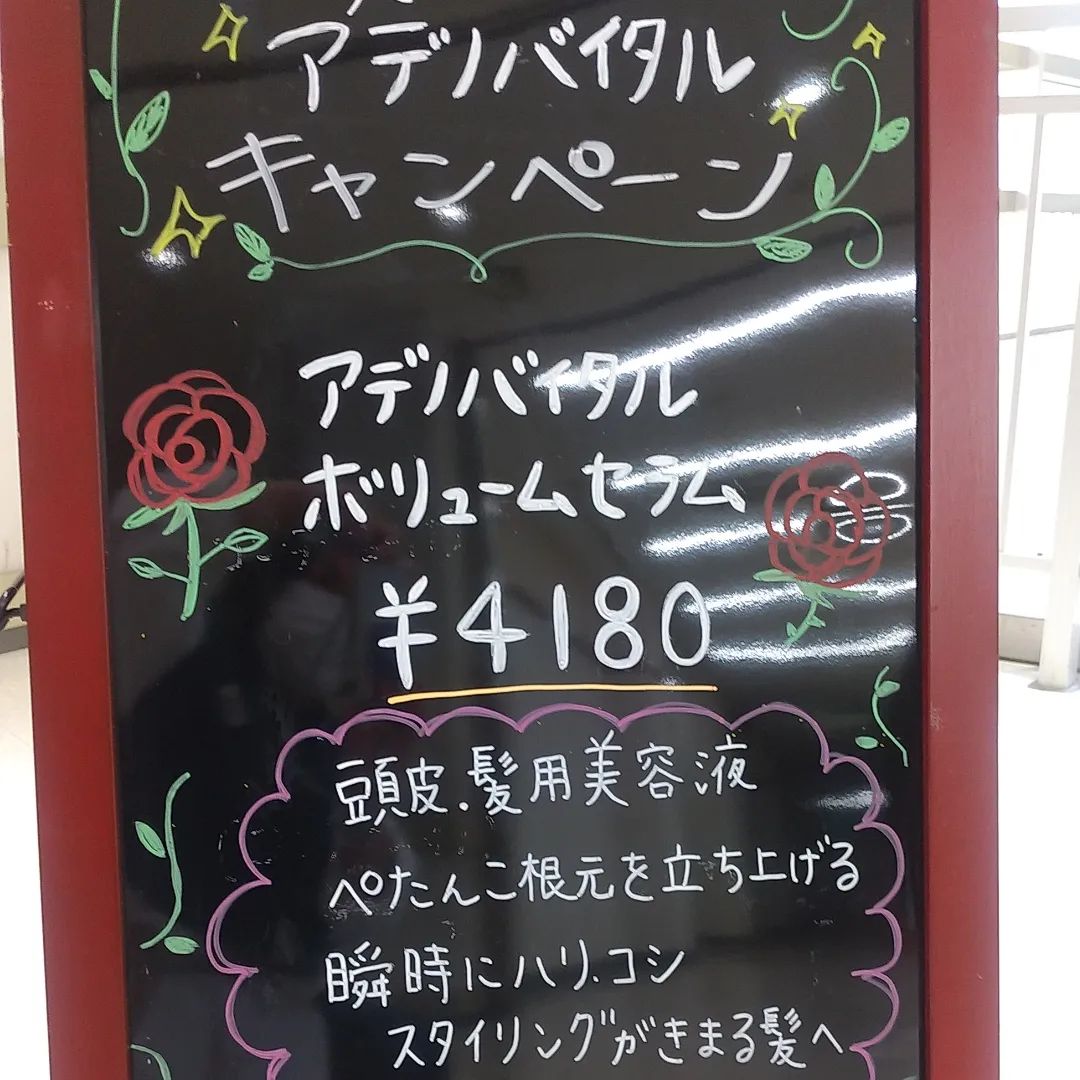 アデノバイタル
キャンペーン
アデノバイタル
ボリュームセラム
¥4180
頭皮.髪用美容液
ぺたんこ根元を立ち上げる
瞬時にハリ.コシ
スタイリングがきまる髪へ